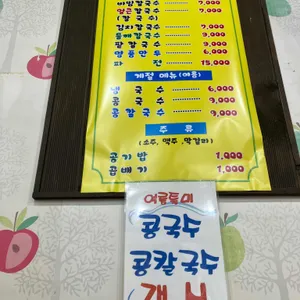 비빔칼국수 7,000
얼큰칼국수 7,000
(칼국수)
김치칼국수 7,000
들깨칼국수 9,000
팥칼국수 9,000
명품만두 6,000
파전 15,000
계절 메뉴(여름)
냉국수 6,000
콩국수 9,000
콩칼국수 9,000
주류
(소주, 맥주, 막걸리)
공기밥 1,000
곱배기 1,000
여름특미
콩국수
콩칼국수
개시